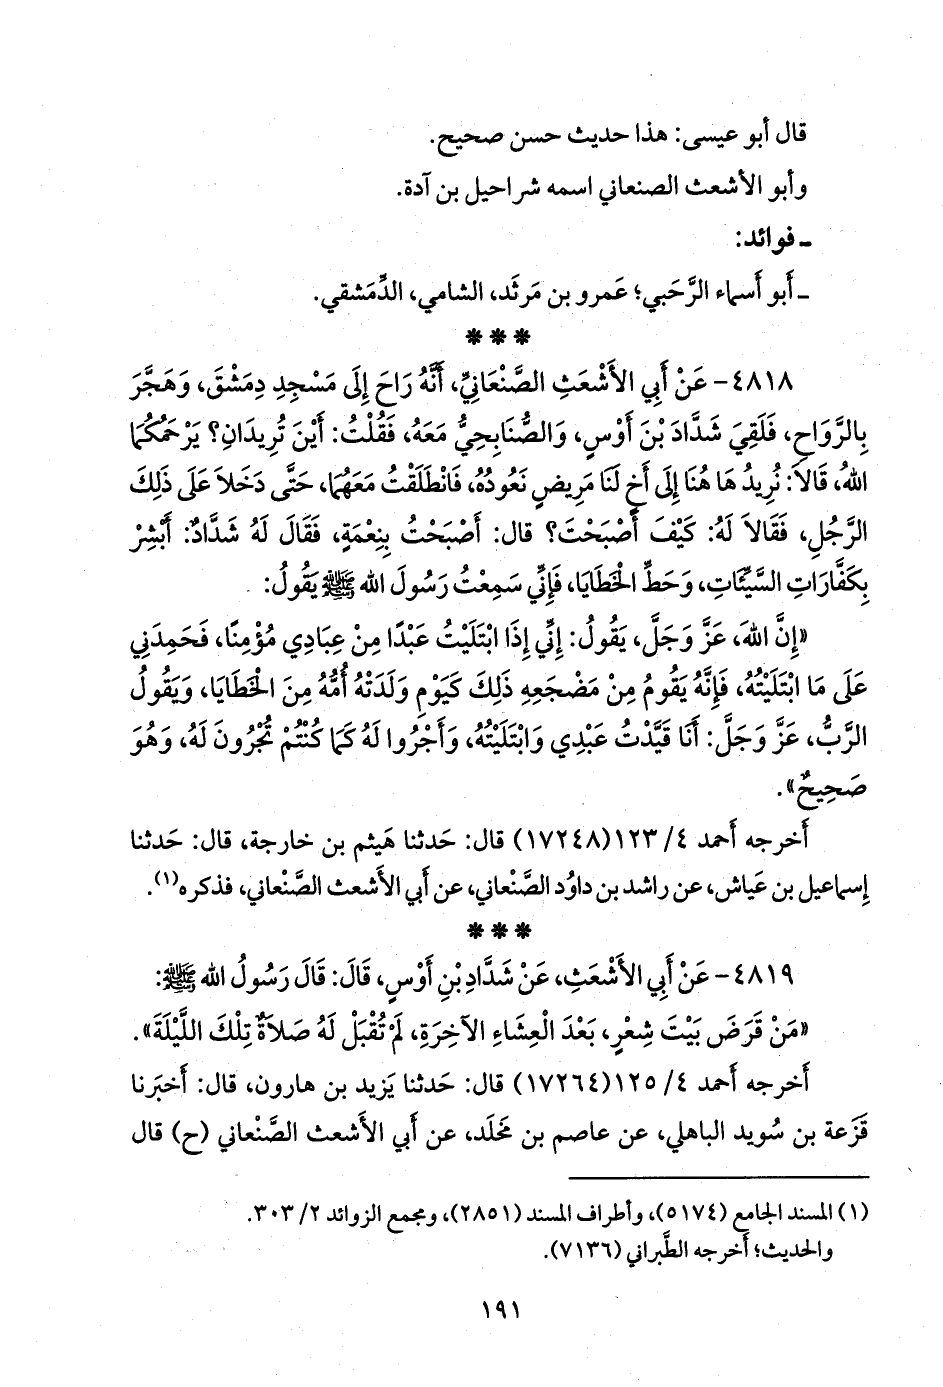 قال أبو عيسى: هذا حديث حسن صحيح.
وأبو الأشعث الصنعاني اسمه شراحيل بن آدة.
ـ فوائد:
ـ أَبو أَسماء الرَّحَبي؛ عَمرو بن مَرثَد، الشامي، الدِّمَشقي.
* * *
٤٨١٨- عَنْ أَبِي الأَشْعَثِ الصَّنْعَانِيِّ، أَنَّهُ رَاحَ إِلَى مَسْجِدِ دِمَشْقَ، وَهَجَّرَ
بِالرَّوَاحِ، فَلَقِيَ شَدَّادَ بْنَ أَوْسٍ، وَالصُّنَابِحِيُّ مَعَهُ، فَقُلْتُ: أَيْنَ تُرِيدَانِ؟ يَرْحَمُكُمَا
اللهُ، قَالاَ: نُرِيدُ هَا هُنَا إِلَى أَخٍ لَنَا مَرِيضٍ نَعُودُهُ، فَانْطَلَقْتُ مَعَهُمَا، حَتَّى دَخَلاَ عَلَى ذَلِكَ
الرَّجُلِ، فَقَالاَ لَهُ: كَيْفَ أَصْبَحْتَ؟ قال: أَصْبَحْتُ بِنِعْمَةٍ، فَقَالَ لَهُ شَدَّادٌ: أَبْشِرْ
بِكَفَّارَاتِ السَّيِّئَاتِ، وَحَطِّ الْخَطَايَا، فَإِنِّي سَمِعْتُ رَسُولَ الله ﷺ يَقُولُ:
«إِنَّ اللهَ، عَزَّ وَجَلَّ، يَقُولُ: إِنِّي إِذَا ابْتَلَيْتُ عَبْدًا مِنْ عِبَادِي مُؤْمِنًا، فَحَمِدَنِي
عَلَى مَا ابْتَلَيْتُهُ، فَإِنَّهُ يَقُومُ مِنْ مَضْجَعِهِ ذَلِكَ كَيَوْمِ وَلَدَتْهُ أُمُّهُ مِنَ الْخَطَايَا، وَيَقُولُ
الرَّبُّ، عَزَّ وَجَلَّ: أَنَا قَيَّدْتُ عَبْدِي وَابْتَلَيْتُهُ، وَأَجْرُوا لَهُ كَمَا كُنْتُمْ تُجْرُونَ لَهُ، وَهُوَ
صَحِيحٌ».
أَخرجه أَحمد ٤/ ١٢٣(١٧٢٤٨) قال: حَدثنا هَيثم بن خارجة، قال: حَدثنا
إِسماعيل بن عَياش، عن راشد بن داوُد الصَّنْعاني، عن أَبي الأَشعث الصَّنْعاني، فذكره(١).
* * *
٤٨١٩- عَنْ أَبِي الأَشْعَثِ، عَنْ شَدَّادِ بْنِ أَوْسٍ، قَالَ: قَالَ رَسُولُ الله ﷺ:
«مَنْ قَرَضَ بَيْتَ شِعْرٍ، بَعْدَ الْعِشَاءِ الآخِرَةِ، لَمْ تُقْبَلْ لَهُ صَلاَةٌ تِلْكَ اللَّيْلَةَ».
أَخرجه أَحمد ٤/ ١٢٥(١٧٢٦٤) قال: حَدثنا يَزيد بن هارون، قال: أَخبَرنا
قَزَعة بن سُويد الباهلي، عن عاصم بن مَخلَد، عن أَبي الأَشعث الصَّنْعاني (ح) قال
(١) المسند الجامع (٥١٧٤)، وأطراف المسند (٢٨٥١)، ومجمع الزوائد ٢/ ٣٠٣.
والحديث؛ أَخرجه الطَّبراني (٧١٣٦).
١٩١